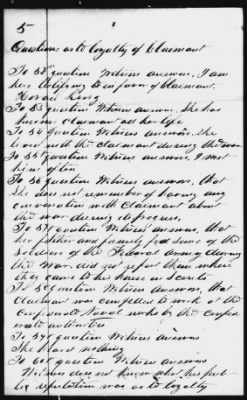 5
Questions as to loyalty of Claimant
To 52d question Witness answers, I am
here testifying in favor of Claimant.
Horace King
To 53 question Witness answers, She has
known Claimant all her life
To 54 question Witness answers. She
lived with the Claimant during the war
To 55 question Witness answers. I met
him often
To 56 question Witness answers, that
She did not remember of having any
conversation with Claimant about
the war during its progress,
To 57 question Witness answers, that
her father and family fed some of the
soldiers of the Federal army during
the War, did not report them where
they came to their house and
To 58 question Witness answers, that
Claimant was compelled to work at the
Confederate Naval works by the Confed
erate authorities
To 59 question Witness answers
She heard nothing
To 60 question Witness answers
Witness does not know what his pub
lic reputation was as to loyalty